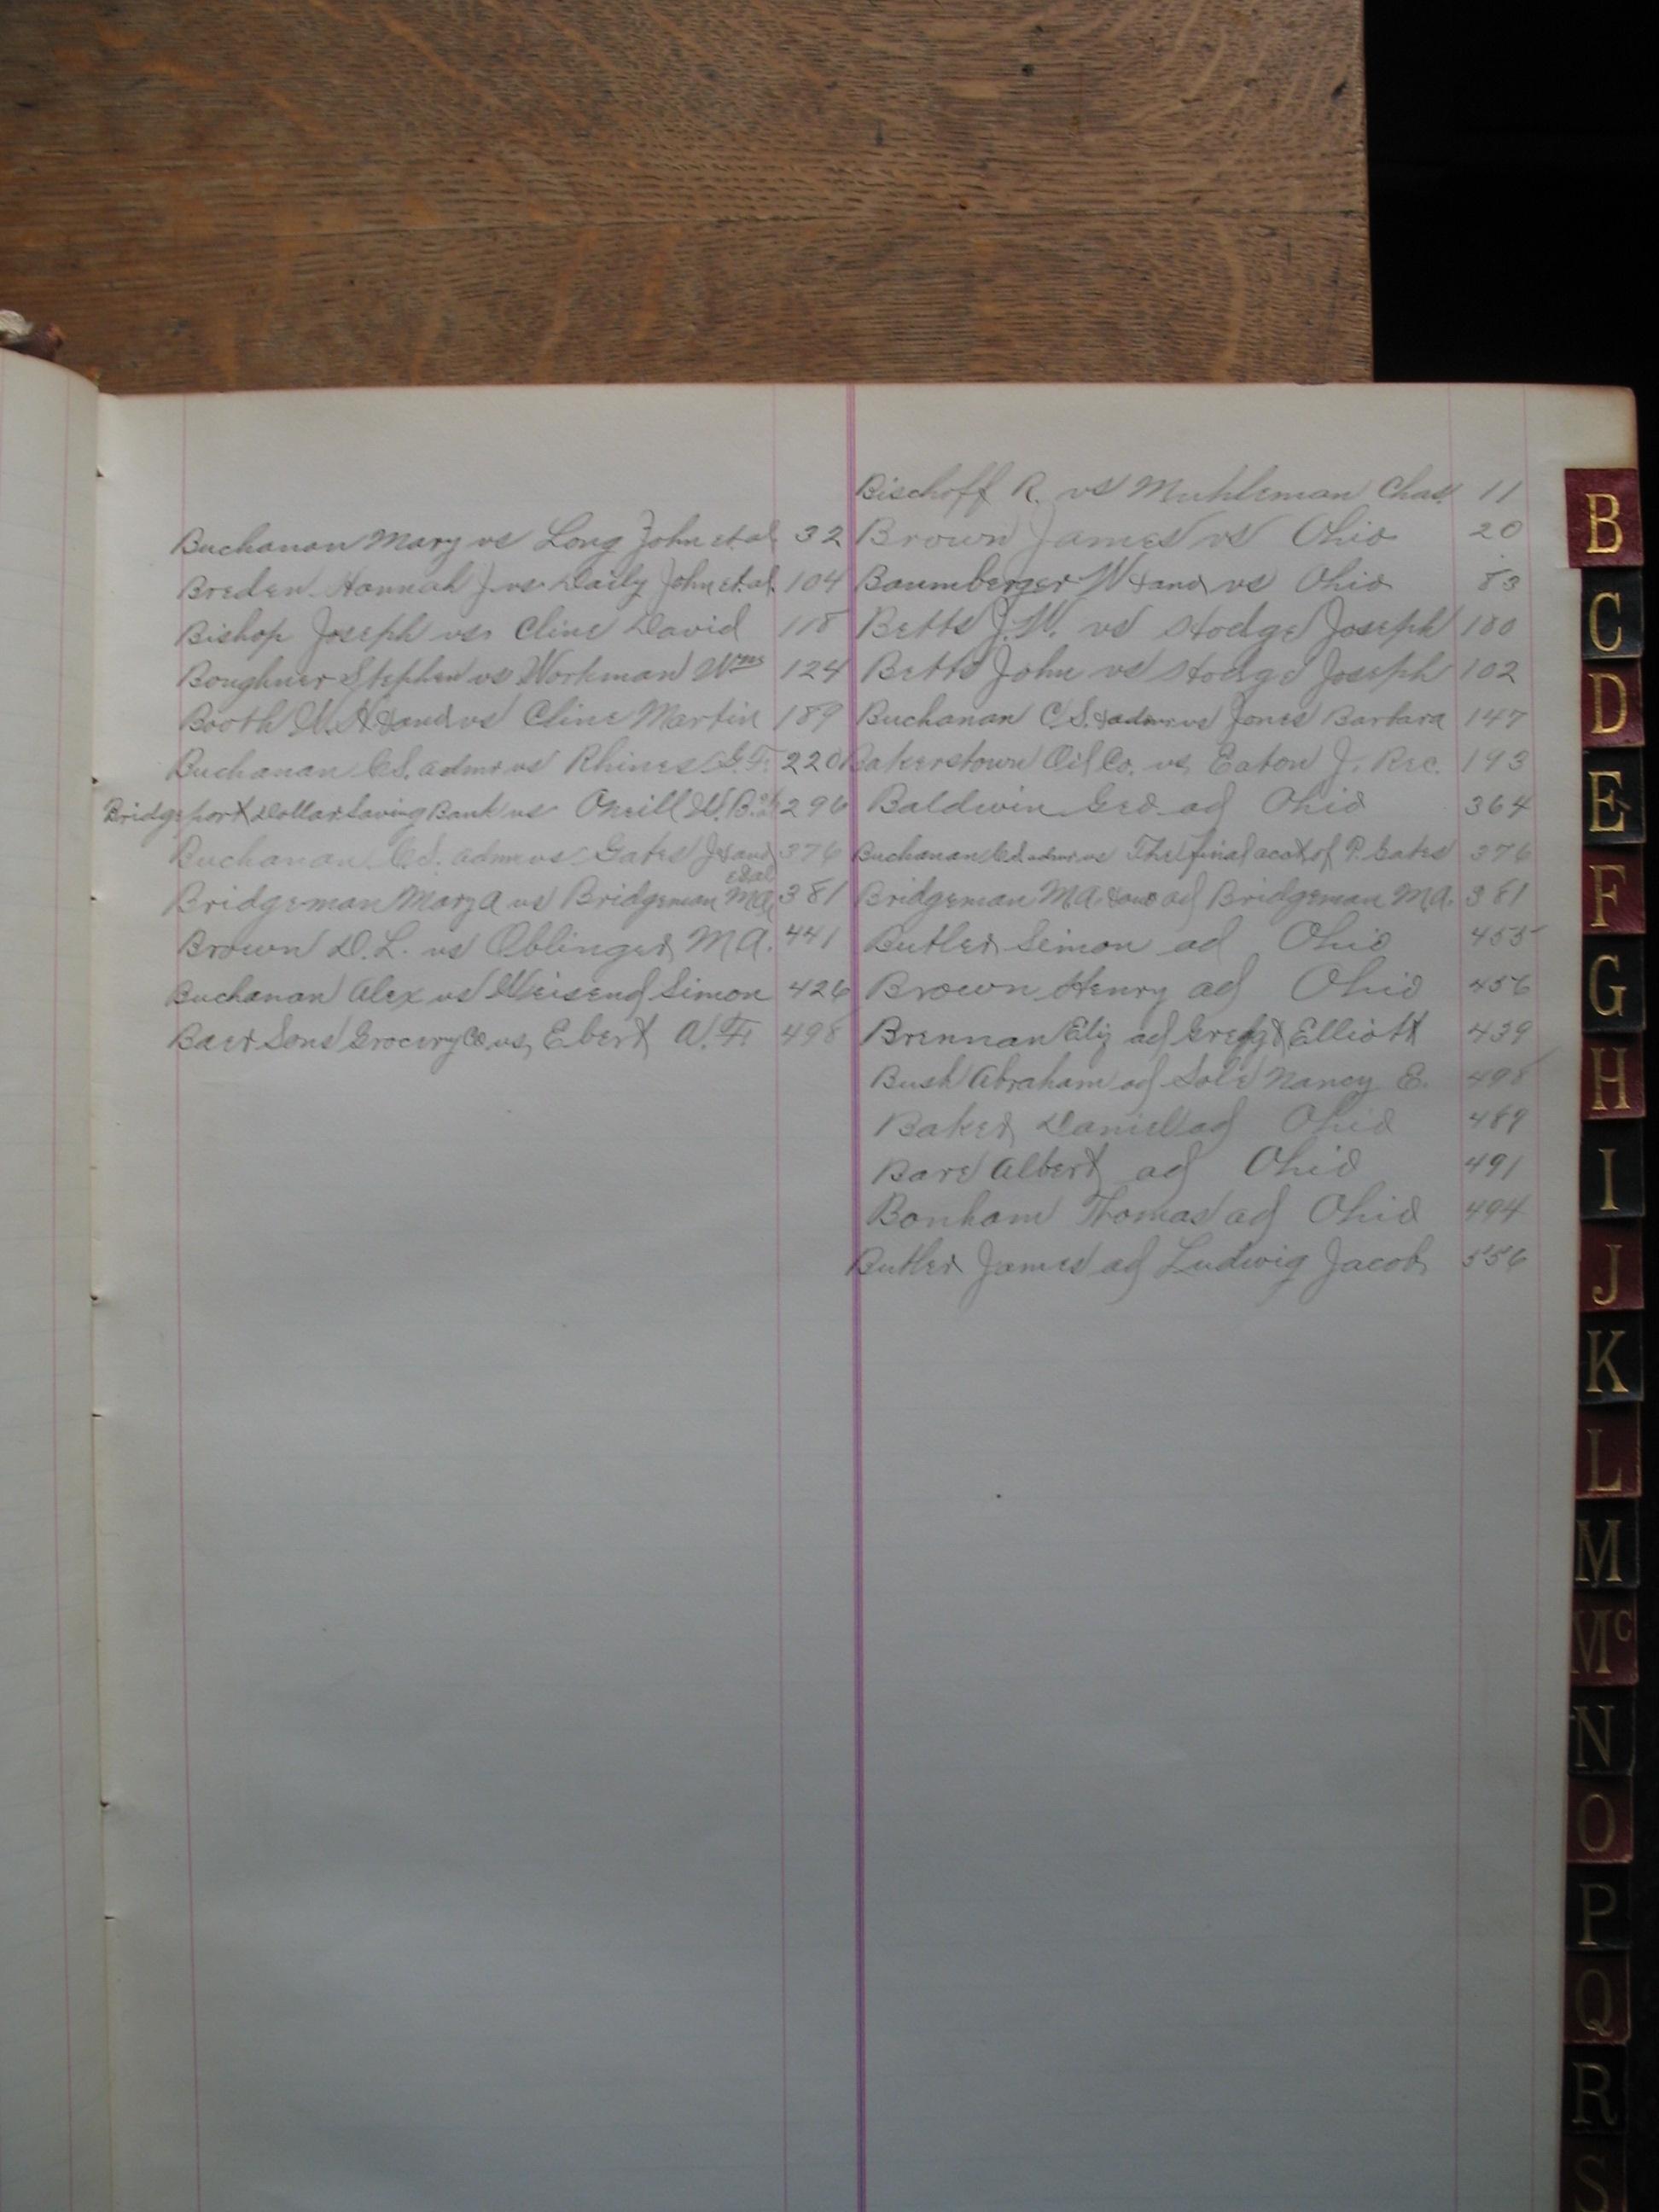 Buchanan Mary vs Long John et al 32
Breden Hannah J. vs Daily John et al. 104
Bishop Joseph vs. Cline David 118
Boughner Stephen vs Workman Wm 124
Booth W. H & and vs Cline Martin 189
Buchanan C.S. admr vs Rhines G. F. 220
Bridgeport Dollar Saving Bank vs Oneill W. B. 296
Buchanan C.S. admr vs Gates J & and 376
et al
Bridgeman Mary A vs Bridgeman M A 381
Brown D. L. vs Oblinger M A. 441
Buchanan Alex vs Weisend Simon 426
Baer Sons Grocery Co vs, Ebert A. F. 498
Bischoff R. vs Muhleman Chas. 11
Brown James vs Ohio 20
Baumberger W & and vs Ohio 83
Betts J. W. vs Hodge Joseph 180
Betts John vs Hodge Joseph 102
Buchanan C.S. & admr vs Jones Barbara 147
Bakerstown Oil Co. vs Eaton J. Rec. 193
Baldwin Geo ad Ohio 364
Buchanan C.S. admr vs The final acct of P. Gates 376
Bridgeman M A & and ad Bridgeman M. A. 381
Butler Simon ad Ohio 455
Brown Henry ad Ohio 456
Brennan Eliz ad Gregg & Elliott 439
Bush Abraham ad Sole Nancy E. 498
Baker Daniel ad Ohio 489
Bare Albert ad Ohio 491
Bonham Thomas ad Ohio 494
Butler James ad Ludwig Jacob 556
B
C
D
E
F
G
H
I
J
K
L
M
Mc
N
O
P
Q
R
S